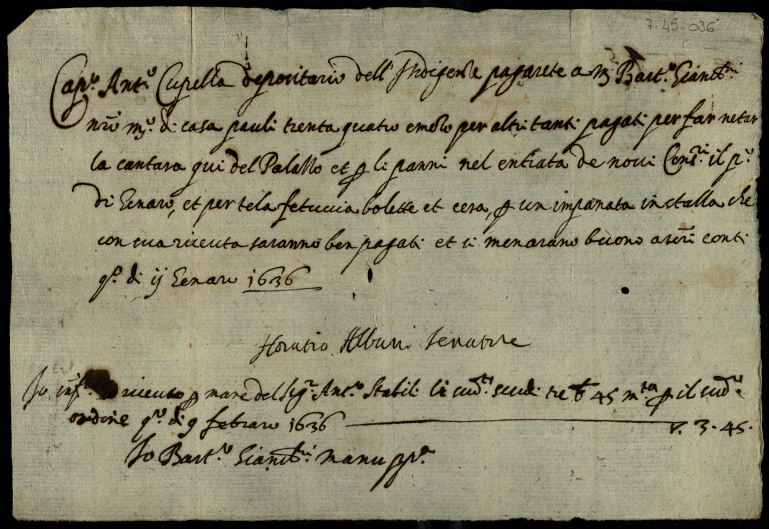 7-45-036
Cap.º Ant.º Cupella depositario dell' Indigense pagarete a m Bart.º Gianct.ni
nro m.º di casa pauli trenta quatro e mezo per altri tanti pagati per far netar
la cantara qui del Palazzo et p li panni nel entrata de novi Cons.ri il p.º
di Genaro, et per tela fetuccia bolette et cera, p un impanata in stalla che
con sua riceuta saranno ben pagati et si menarano buono a suoi conti
q.º di ij Genaro 1636
Horatio Albani Senatore
Io inf.to riceuto p mane del Sig.r Ant.º Stabili li sud.ti scudi tre b 45 m.ta p il sud.º
ordine q.º di 9 febraro 1636 v. 3-45-
Io Bart.º Gianct.ni manu pp.a